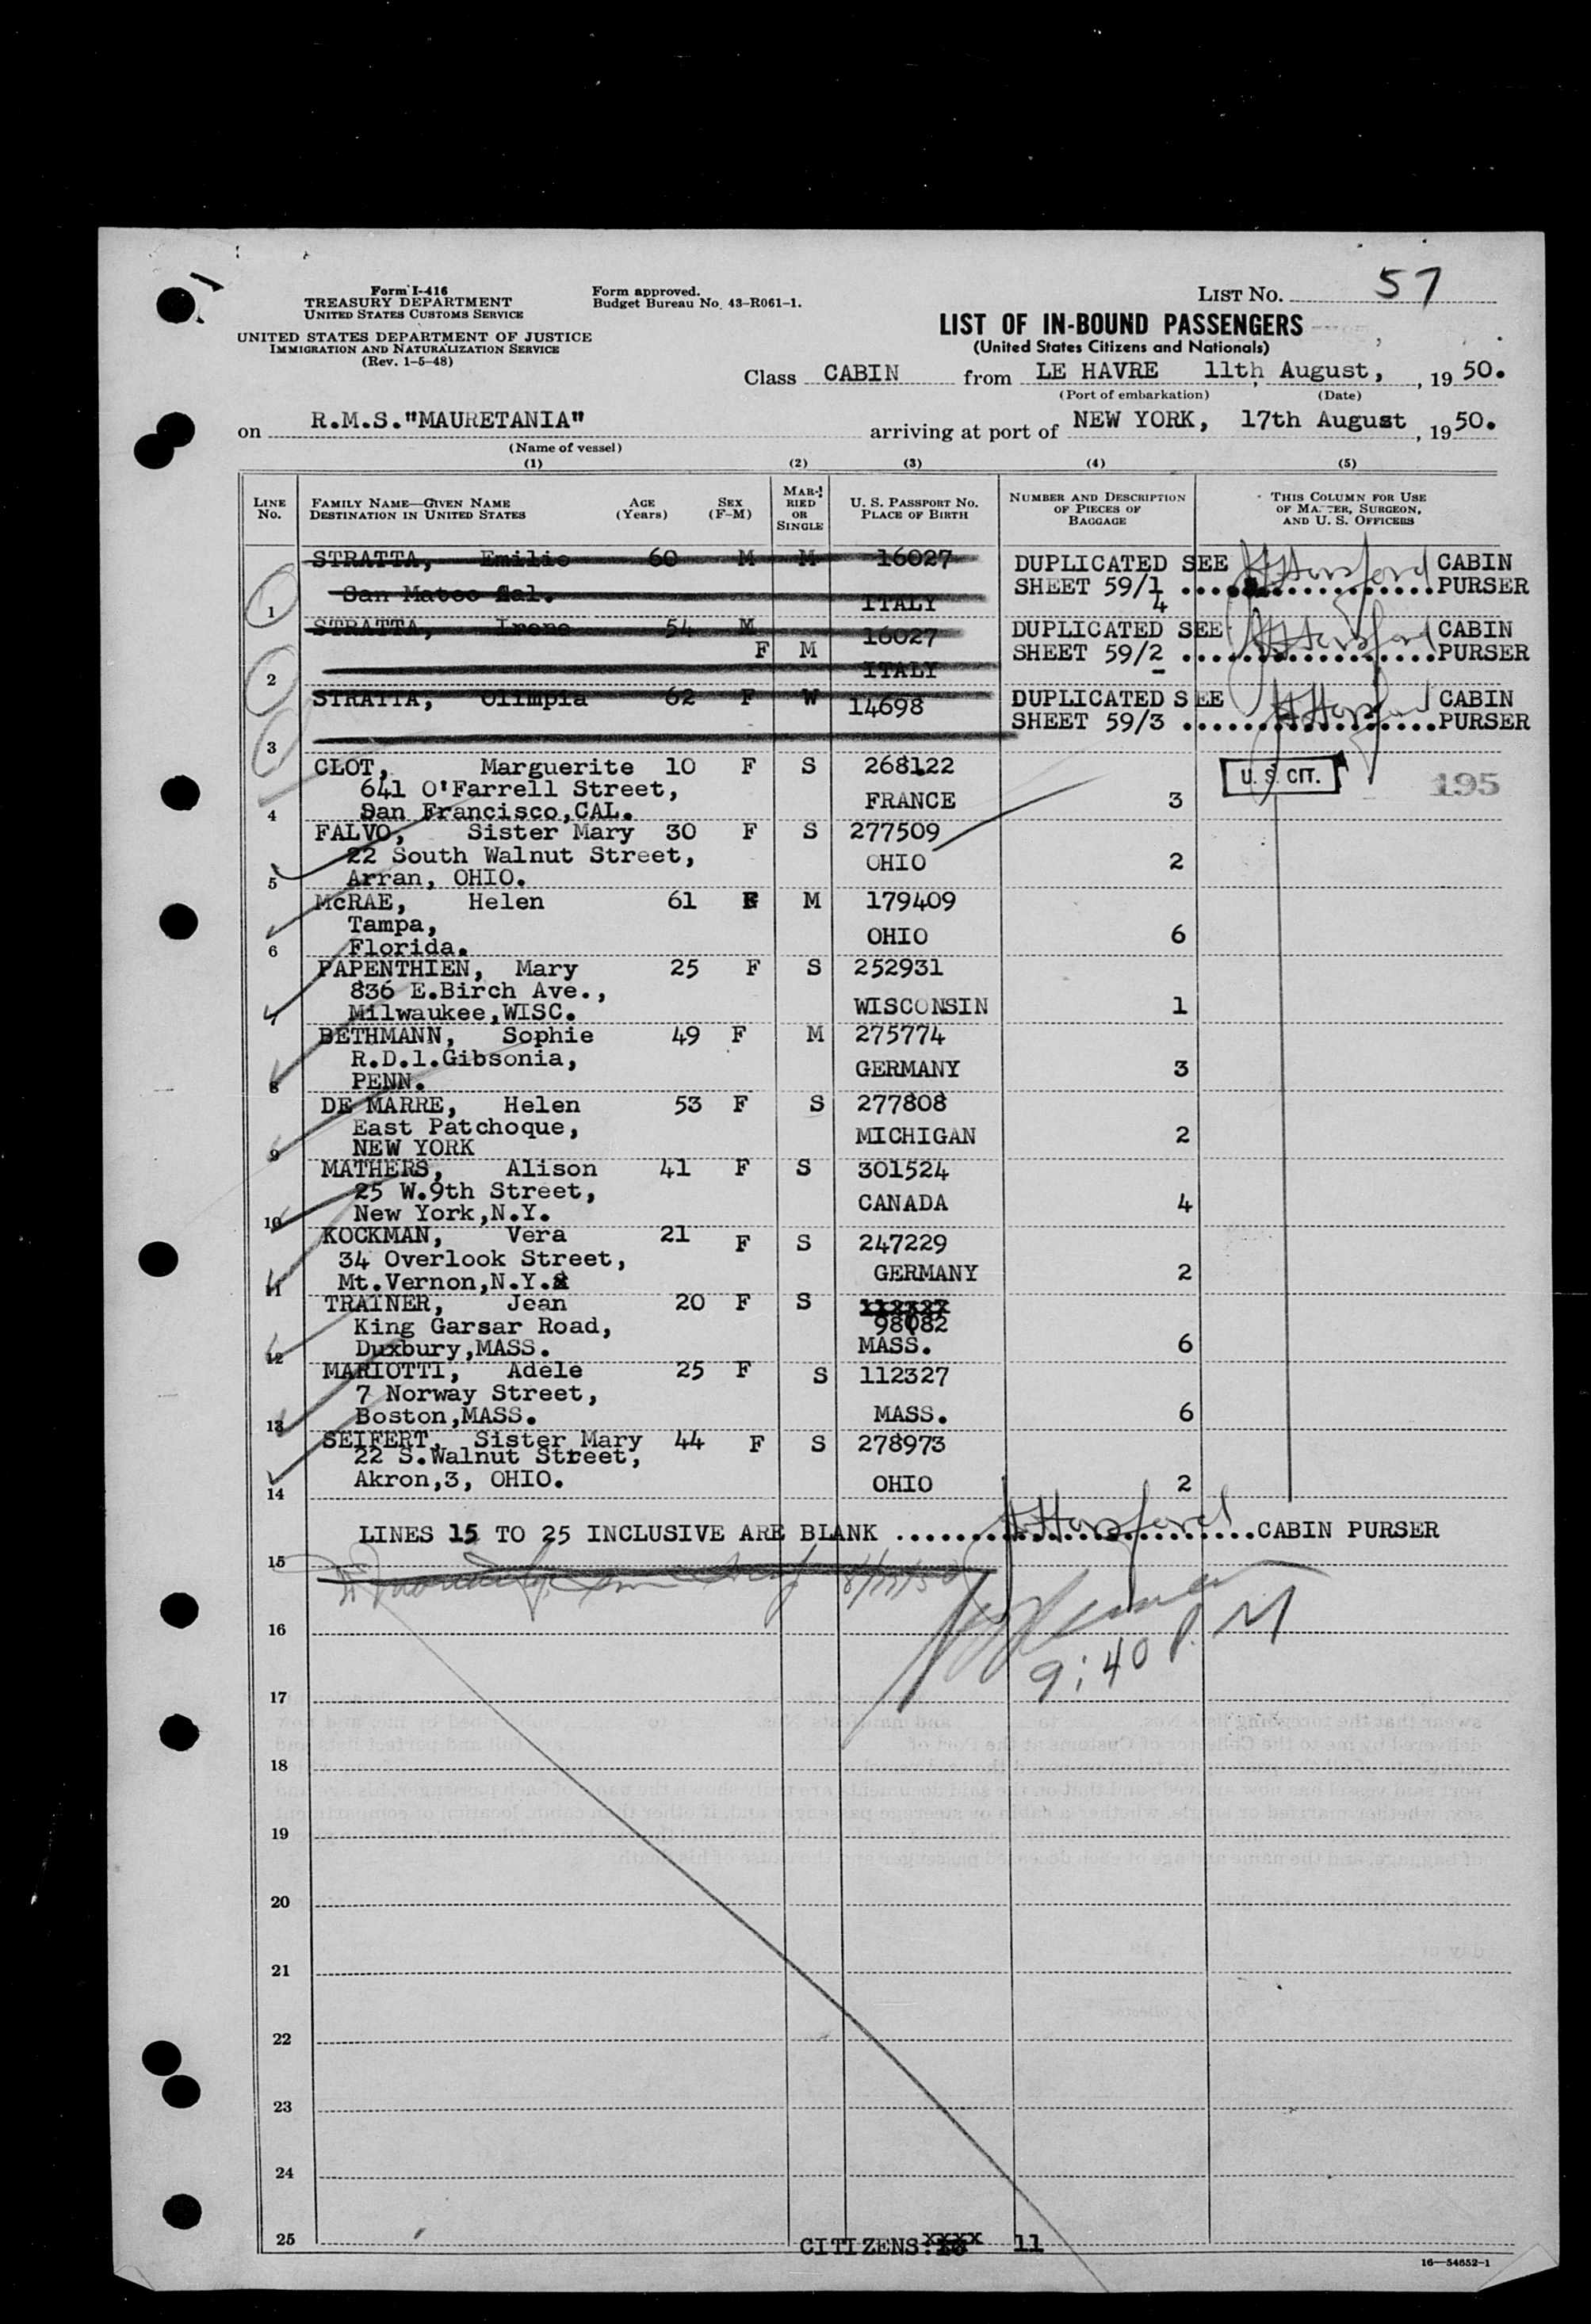 Form I-416
TREASURY DEPARTMENT
UNITED STATES CUSTOMS SERVICE
UNITED STATES DEPARTMENT OF JUSTICE
IMMIGRATION AND NATURALIZATION SERVICE
(Rev. 1-5-48)
Form approved.
Budget Bureau No. 43-R061-1.
LIST NO. 57
LIST OF IN-BOUND PASSENGERS
(United States Citizens and Nationals)
Class CABIN from LE HAVRE 11th August, , 19 50.
(Port of embarkation) (Date)
on R.M.S."MAURETANIA" arriving at port of NEW YORK, 17th August , 19 50.
(Name of vessel)
(1) (2) (3) (4) (5)
LINE No. FAMILY NAME—GIVEN NAME DESTINATION IN UNITED STATES AGE (Years) SEX (F-M) MARRIED OR SINGLE U. S. PASSPORT NO. PLACE OF BIRTH NUMBER AND DESCRIPTION OF PIECES OF BAGGAGE THIS COLUMN FOR USE OF MASTER, SURGEON, AND U. S. OFFICERS
STRATTA, Emilio 60 M M 16027 DUPLICATED SEE CABIN
San Mateo Cal. SHEET 59/1 PURSER
1 ITALY 4
STRATTA, Irene 54 M 16027 DUPLICATED SEE CABIN
F M SHEET 59/2 PURSER
2 ITALY
STRATTA, Olimpia 62 F W 14698 DUPLICATED SEE CABIN
SHEET 59/3 PURSER
3
CLOT, Marguerite 10 F S 268122 U. S. CIT. 195
641 O'Farrell Street, FRANCE 3
4 San Francisco,CAL.
FALVO, Sister Mary 30 F S 277509
22 South Walnut Street, OHIO 2
5 Arran, OHIO.
McRAE, Helen 61 F M 179409
Tampa, OHIO 6
6 Florida.
PAPENTHIEN, Mary 25 F S 252931
836 E.Birch Ave., WISCONSIN 1
7 Milwaukee,WISC.
BETHMANN, Sophie 49 F M 275774
R.D.1.Gibsonia, GERMANY 3
8 PENN.
DE MARRE, Helen 53 F S 277808
East Patchoque, MICHIGAN 2
9 NEW YORK
MATHERS, Alison 41 F S 301524
25 W.9th Street, CANADA 4
10 New York,N.Y.
KOCKMAN, Vera 21 F S 247229
34 Overlook Street, GERMANY 2
11 Mt.Vernon,N.Y.
TRAINER, Jean 20 F S 112327
King Garsar Road, 98082
12 Duxbury,MASS. MASS. 6
MARIOTTI, Adele 25 F S 112327
7 Norway Street,
13 Boston,MASS. MASS. 6
SEIFERT, Sister Mary 44 F S 278973
22 S.Walnut Street,
Akron,3, OHIO. OHIO 2
14
LINES 15 TO 25 INCLUSIVE ARE BLANK CABIN PURSER
15
16
9:40 P.M
17
18
19
20
21
22
23
24
25 CITIZENS: xxxx 11
16—54652-1